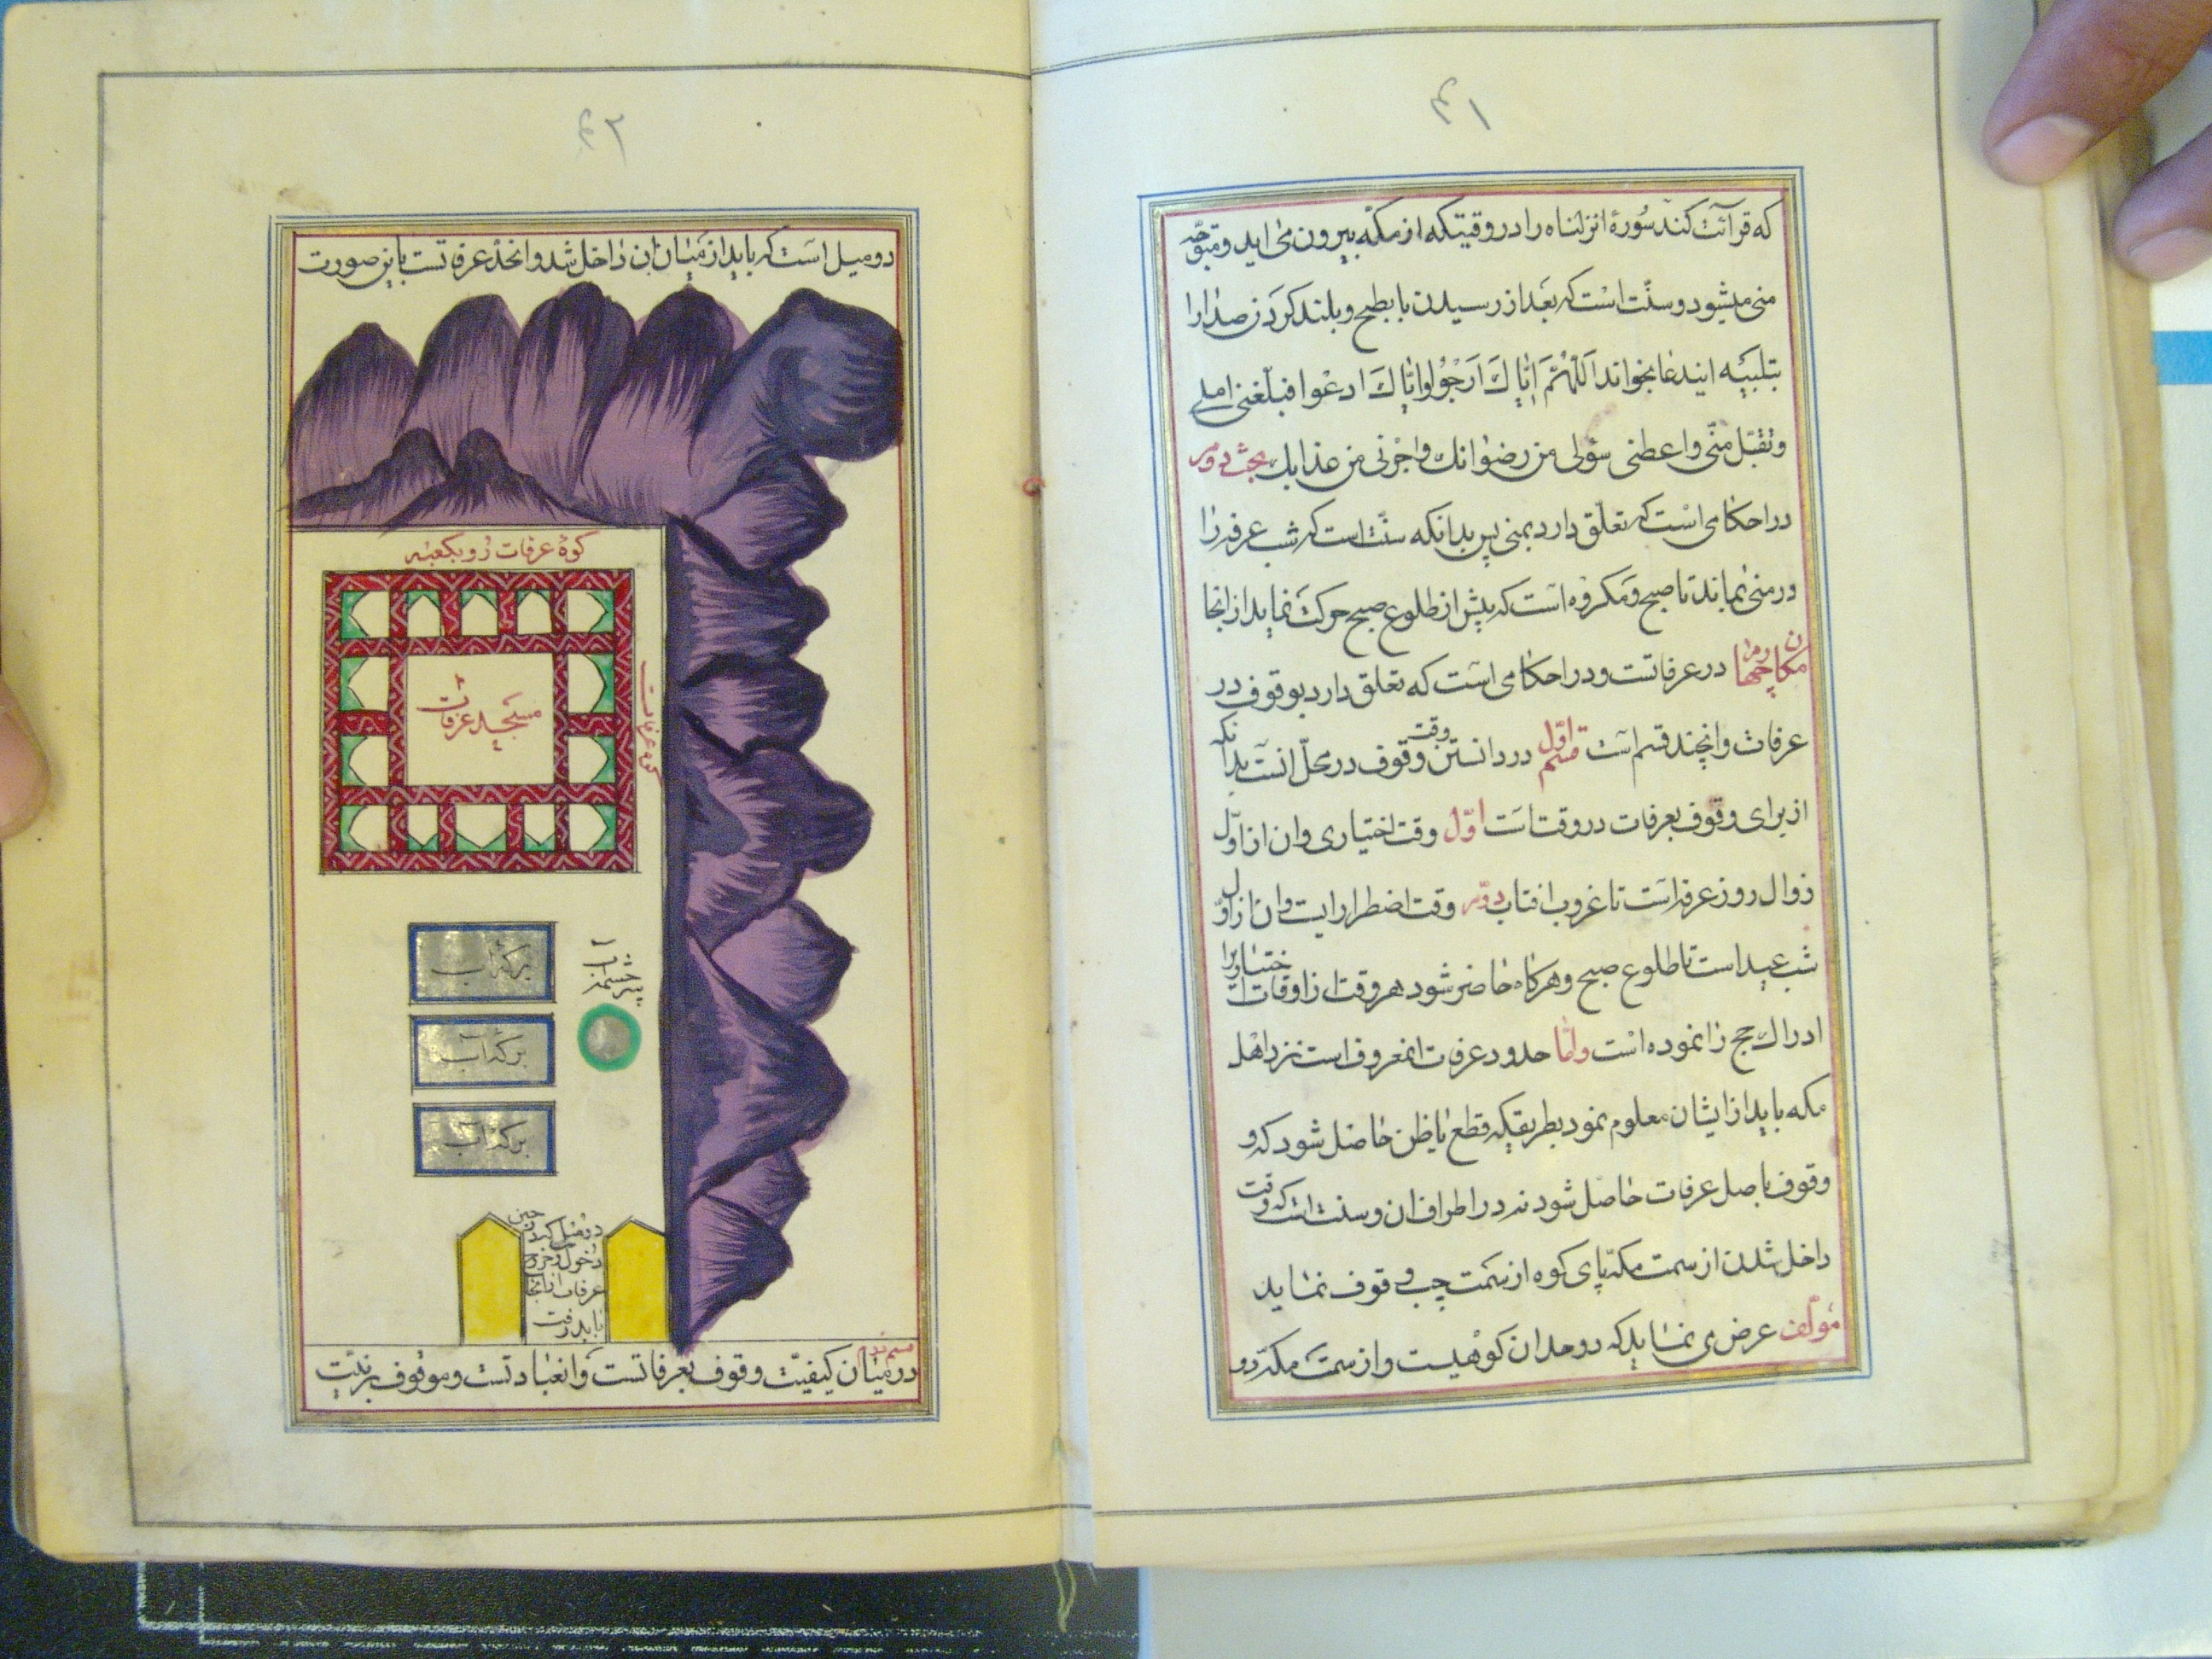 ۴۱
که قرائت کند سورۀ انزلناه را در وقتیکه از مکه بیرون می اید و متوجه
منی میشود و سنّت است که بعد از رسیدن بابطح و بلند کردن صدا را
بتلبیه ایندعا بخواند اَللّهُمَّ اِیّاكَ اَرْجُوا وایّاكَ ادعُوا فبلّغنی املی
وتَقَبّل منّی واعطنی سؤلی من رضوانك واجرنی من عذابك بحث دویم
در احکامی است که تعلّق دارد بمنی پس بدانکه سنّت است که شب عرفه را
در منی بماند تا صبح و مکروه است که پیش از طلوع صبح حرکت نماید از انجا
مکان چهارم در عرفاتست و در احکامی است که تعلق دارد بوقوف در
عرفات و انچند قسم است قسم اوّل در دانستن وقت وقوف در محلّ انست بدانکه
از برای وقوف بعرفات دو وقت است اوّل وقت اختیاری و ان از اوّل
زوال روز عرفه است تا غروب افتاب دویم وقت اضطراریست و ان از اوّل
شب عید است تا طلوع صبح و هرکاه حاضر شود هر وقت از اوقات اختیاریرا
ادراك حج را نموده است وامّا حدود عرفات انمعروف است نزد اهل
مکه باید از ایشان معلوم نمود بطریقیکه قطع یا ظن حاصل شود که و
وقوف باصل عرفات حاصل شود نه در اطراف ان و سنت است که وقت
داخل شدن از سمت مکه پای کوه از سمت چپ وقوف نماید
مؤلّف عرض می نماید که دو حد ان کوهیست و از سمت مکه دو
۴۲
دو میل است که باید از میان ان داخل شد و انحدّ عرفاتست باین صورت
کوه عرفات رو بکعبه
کوه عرفاتست
مسجد عرفات
برکه اب
سرچشمه اب
برکه اب
برکه اب
دو میل که در حین
دخول و خروج
عرفات از انجا
باید رفت
قسم دویم
در میان کیفیّت وقوف بعرفاتست و انعبادتست و موقوف بر نیّت